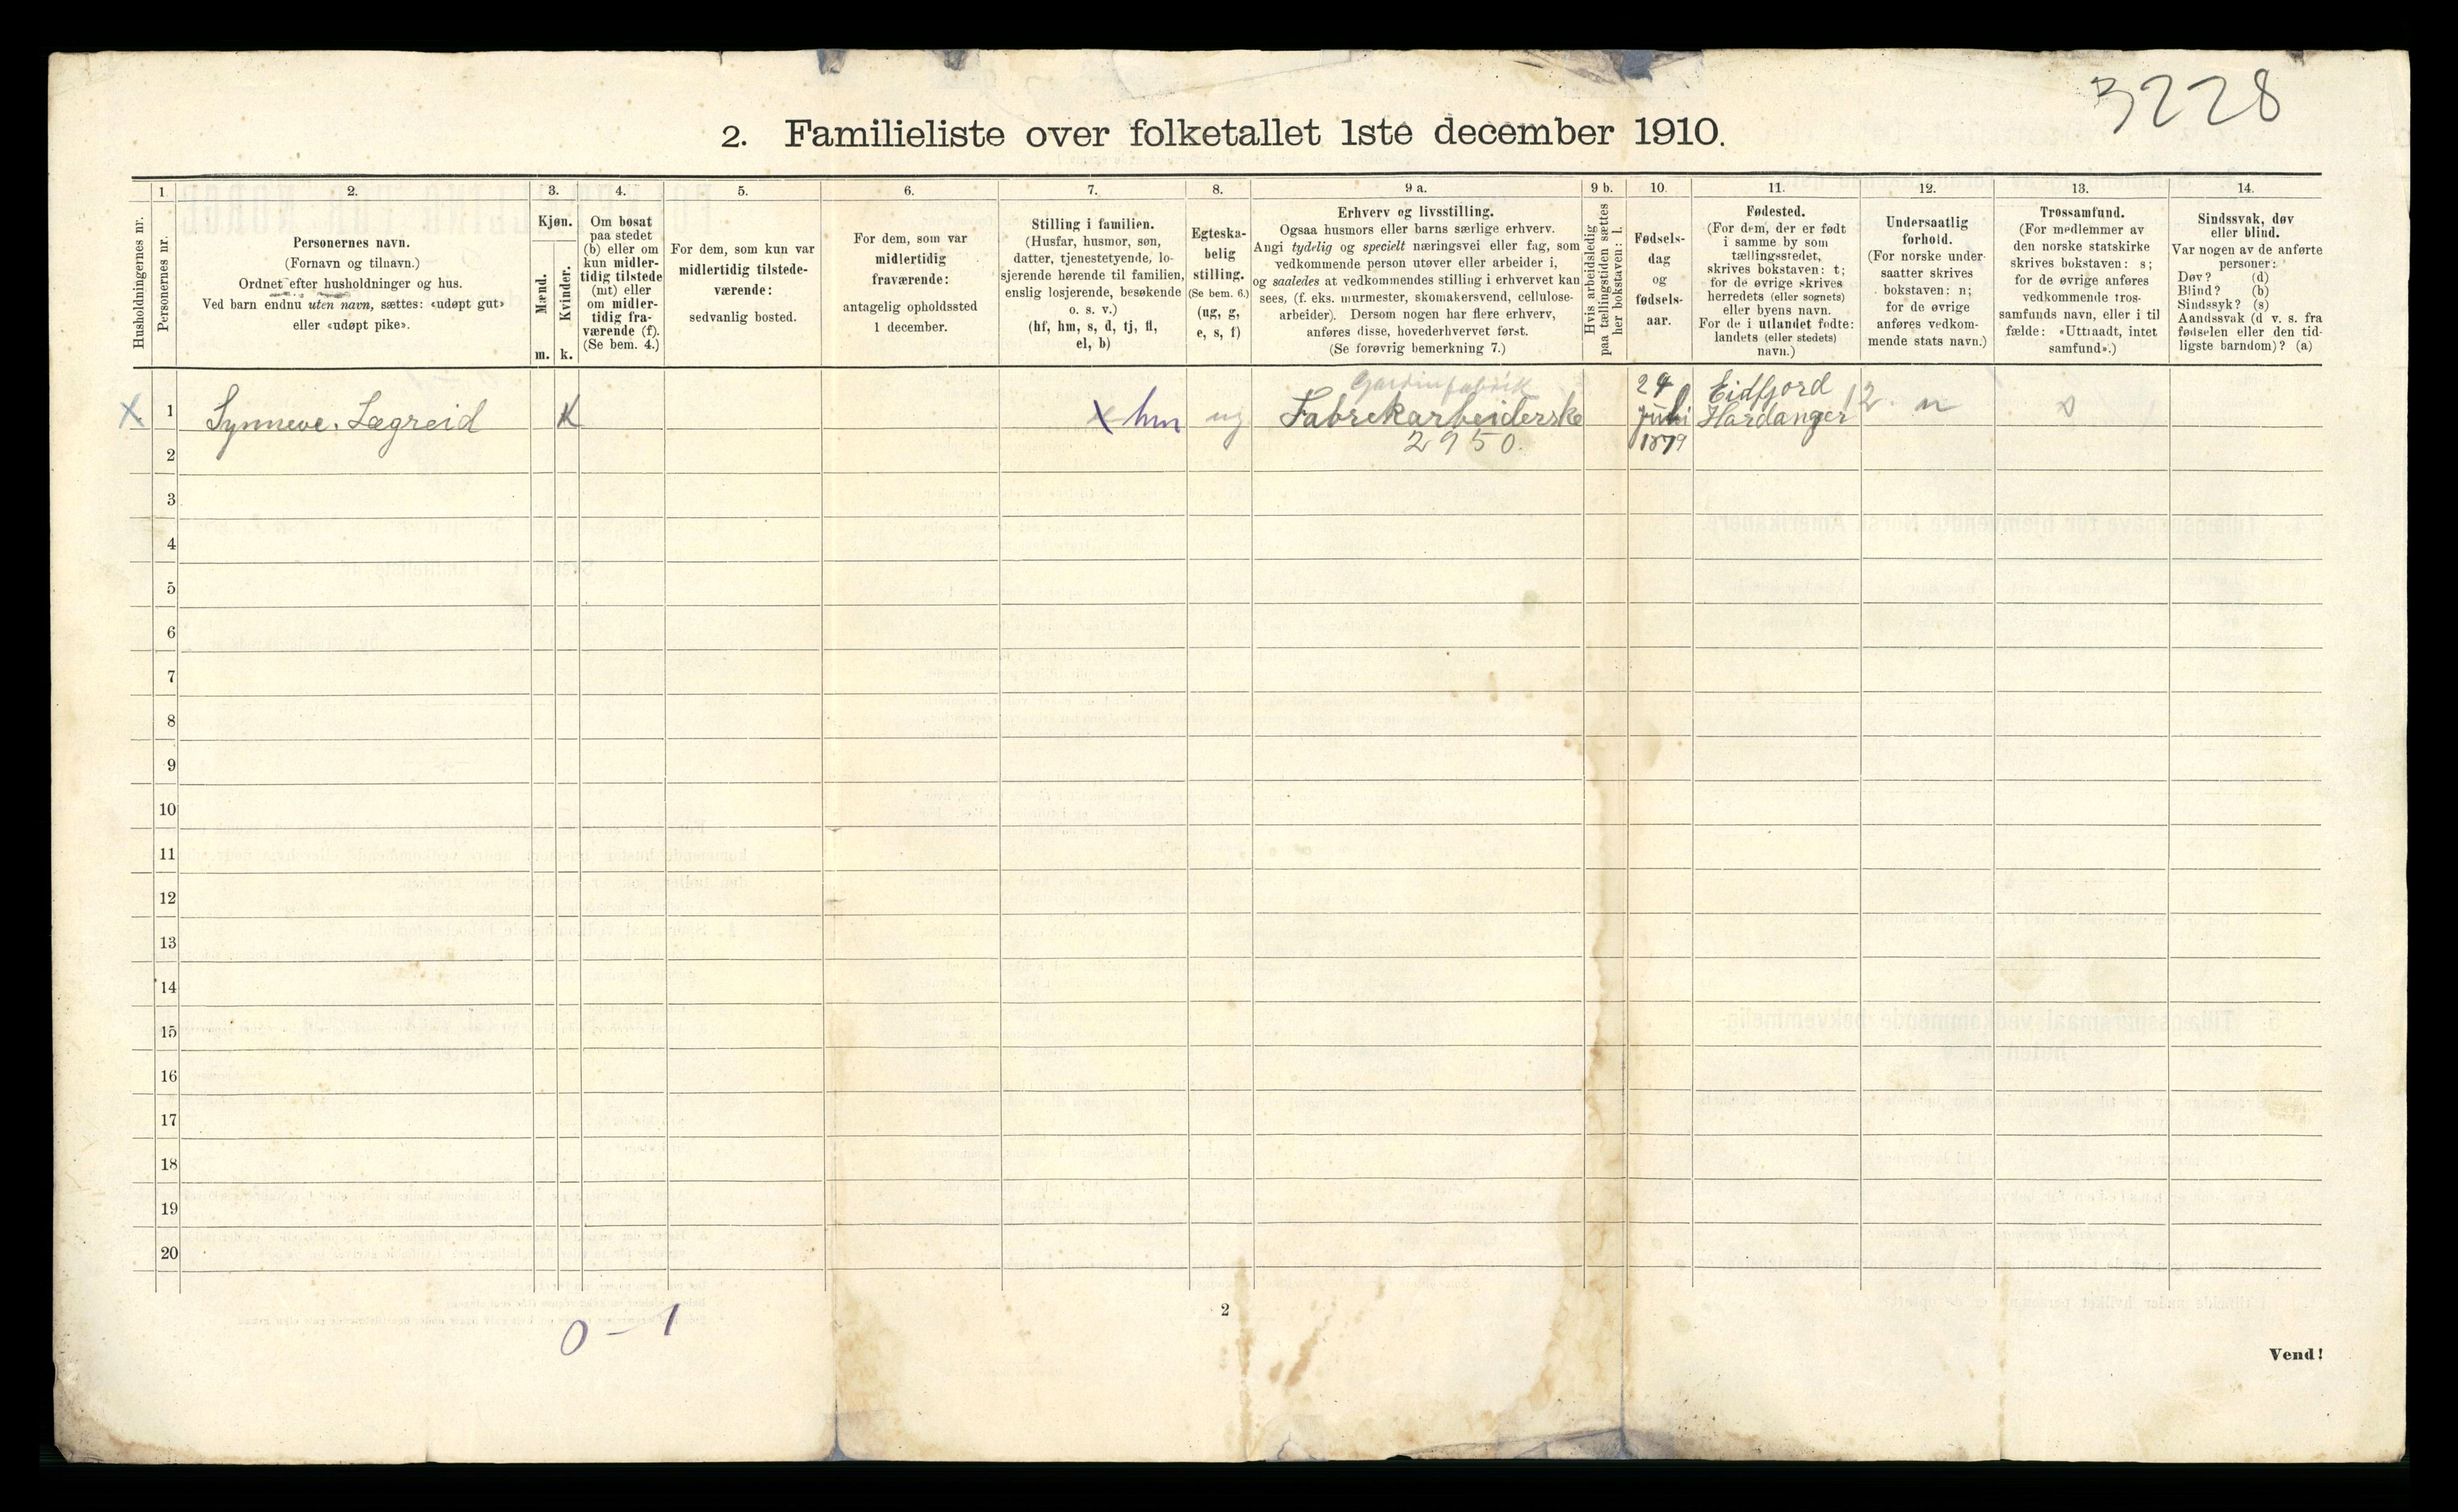 3228
2. Familieliste over folketallet 1ste december 1910.
Husholdningernes nr.
1.
Personernes nr.
2.
Personernes navn.
(Fornavn og tilnavn.)
Ordnet efter husholdninger og hus.
Ved barn endnu uten navn, sættes: «udøpt gut»
eller «udøpt pike».
3.
Kjøn.
Mænd.
m.
Kvinder.
k.
4.
Om bosat
paa stedet
(b) eller om
kun midler-
tidig tilstede
(mt) eller
om midler-
tidig fra-
værende (f).
(Se bem. 4.)
5.
For dem, som kun var
midlertidig tilstede-
værende:
sedvanlig bosted.
6.
For dem, som var
midlertidig
fraværende:
antagelig opholdssted
1 december.
7.
Stilling i familien.
(Husfar, husmor, søn,
datter, tjenestetyende, lo-
sjerende hørende til familien,
enslig losjerende, besøkende
o. s. v.)
(hf, hm, s, d, tj, fl,
el, b)
8.
Egteska-
belig
stilling.
(Se bem. 6.)
(ug, g,
e, s, f)
9 a.
Erhverv og livsstilling.
Ogsaa husmors eller barns særlige erhverv.
Angi tydelig og specielt næringsvei eller fag, som
vedkommende person utøver eller arbeider i,
og saaledes at vedkommendes stilling i erhvervet kan
sees, (f. eks. murmester, skomakersvend, cellulose-
arbeider). Dersom nogen har flere erhverv,
anføres disse, hovederhvervet først.
(Se forøvrig bemerkning 7.)
9 b.
Hvis arbeidsledig
paa tællingstiden sættes
her bokstaven: l.
10.
Fødsels-
dag
og
fødsels-
aar.
11.
Fødested.
(For dem, der er født
i samme by som
tællingsstedet,
skrives bokstaven: t;
for de øvrige skrives
herredets (eller sognets)
eller byens navn.
For de i utlandet fødte:
landets (eller stedets)
navn.)
12.
Undersaatlig
forhold.
(For norske under-
saatter skrives
bokstaven: n;
for de øvrige
anføres vedkom-
mende stats navn.)
13.
Trossamfund.
(For medlemmer av
den norske statskirke
skrives bokstaven: s;
for de øvrige anføres
vedkommende tros-
samfunds navn, eller i til
fælde: «Uttraadt, intet
samfund».)
14.
Sindssvak, døv
eller blind.
Var nogen av de anførte
personer:
Døv? (d)
Blind? (b)
Sindssyk? (s)
Aandssvak (d v. s. fra
fødselen eller den tid-
ligste barndom)? (a)
X 1 Synneve. Lægreid K X hm ug Gardinfabrik Fabrekarbeiderske 24 Juli 1879 Eidfjord Hardanger 12 n s
2 2950.
3
4
5
6
7
8
9
10
11
12
13
14
15
16
17
18
19
20
0 - 1
2
Vend!